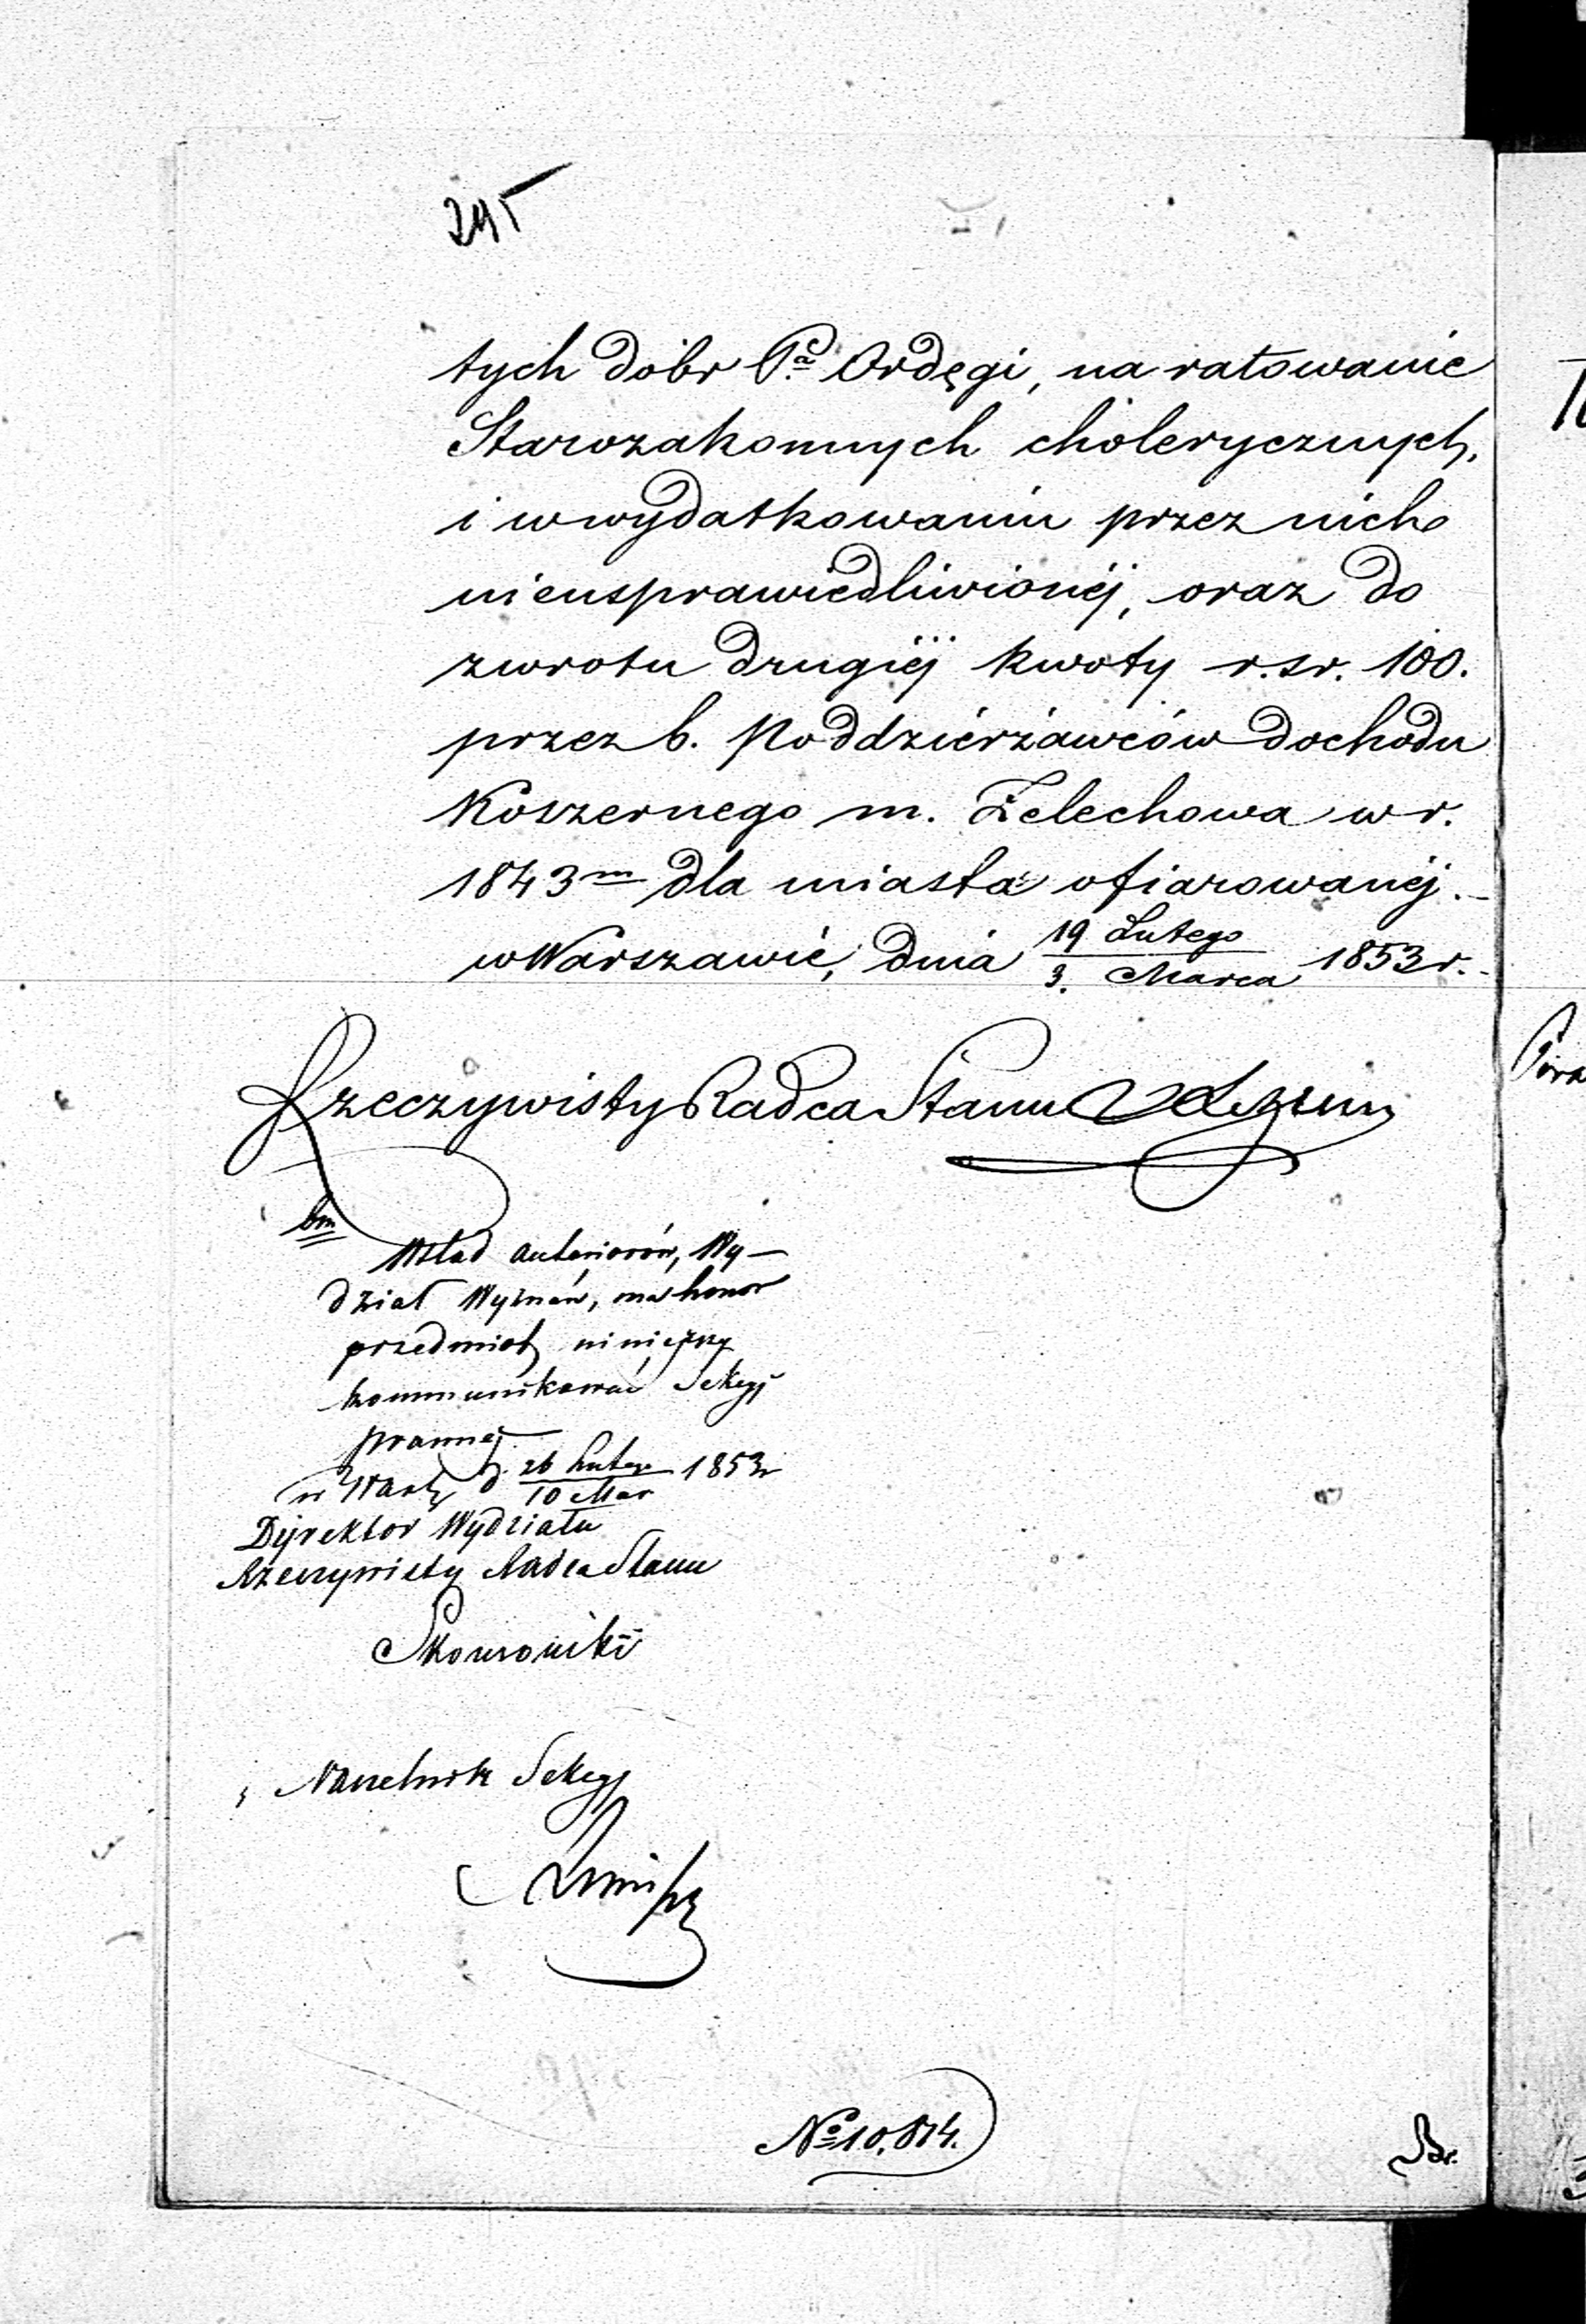 295
tych dóbr Pa. Ordęgi, na ratowanie
Starozakonnych cholerycznych,
i w wydatkowaniu przez nich
nieusprawiedliwionéj, oraz do
zwrotu drugiéj kwoty r.sr. 100.
przez b. Poddzierżawców dochodu
Koszernego m. Żelechowa w r.
1843m dla miasta ofiarowanéj.
w Warszawie, dnia 19 Lutego / 3. Marca 1853 r.
Rzeczywisty Radca Stanu
bm
W ślad anteriorów, Wy-
dział Wyznań, ma honor
przedmiot niniejszy
kommunikować Sekcyi
prawnej
w Warsz d. 26 Lutego / 10 Mar 1853 r
Dyrektor Wydziału
Rzeczywisty Radca Stanu
Skowroński
Naczelnik Sekcyi
No 10,814.
Br.